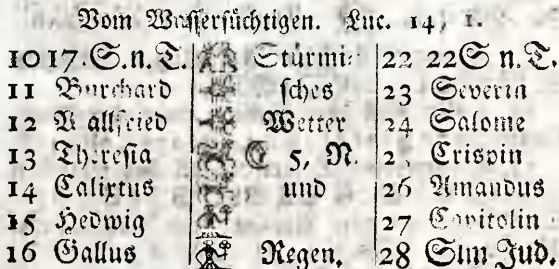 Vom Wassersüchtigen. Luc. 14, 1.
10 17. S. n. T. Stürmi- 22 22 S n. T.
11 Burchard sches 23 Severin
12 Wallfried Wetter 24 Salome
13 Theresia E 5, N. 25 Crispin
14 Calixtus und 26 Amandus
15 Hedwig 27 Capitolin
16 Gallus Regen, 28 Sim Jud.